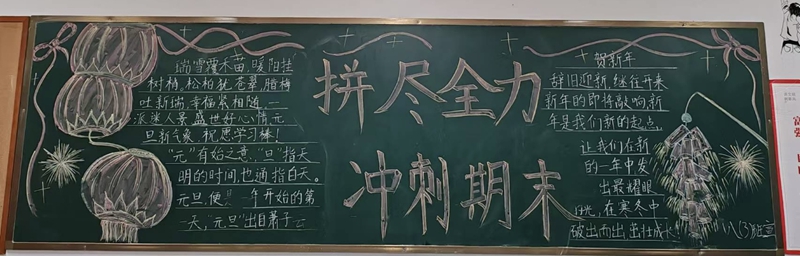 瑞雪覆禾苗,暖阳挂
树梢,松柏犹苍翠,腊梅
吐新瑞,幸福紧相随,一
派迷人景,盛世好心情,元
旦新气象,祝愿学习棒!
"元"有始之意,"旦"指天
明的时间,也通指白天。
元旦便一年开始的第
一天,"元旦"出自萧子云
拼尽全力
冲刺期末
贺新年
辞旧迎新,继往开来
新年的即将敲响,新
年是我们新的起点,
让我们在新
的一年中发
出最耀眼
的光,在寒冬中
破出而出,茁壮成长
八(3)班宣